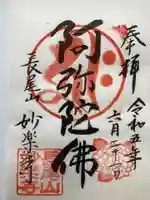 奉拝
令和五年
六月二十一日
阿弥陀佛
長尾山
妙楽寺